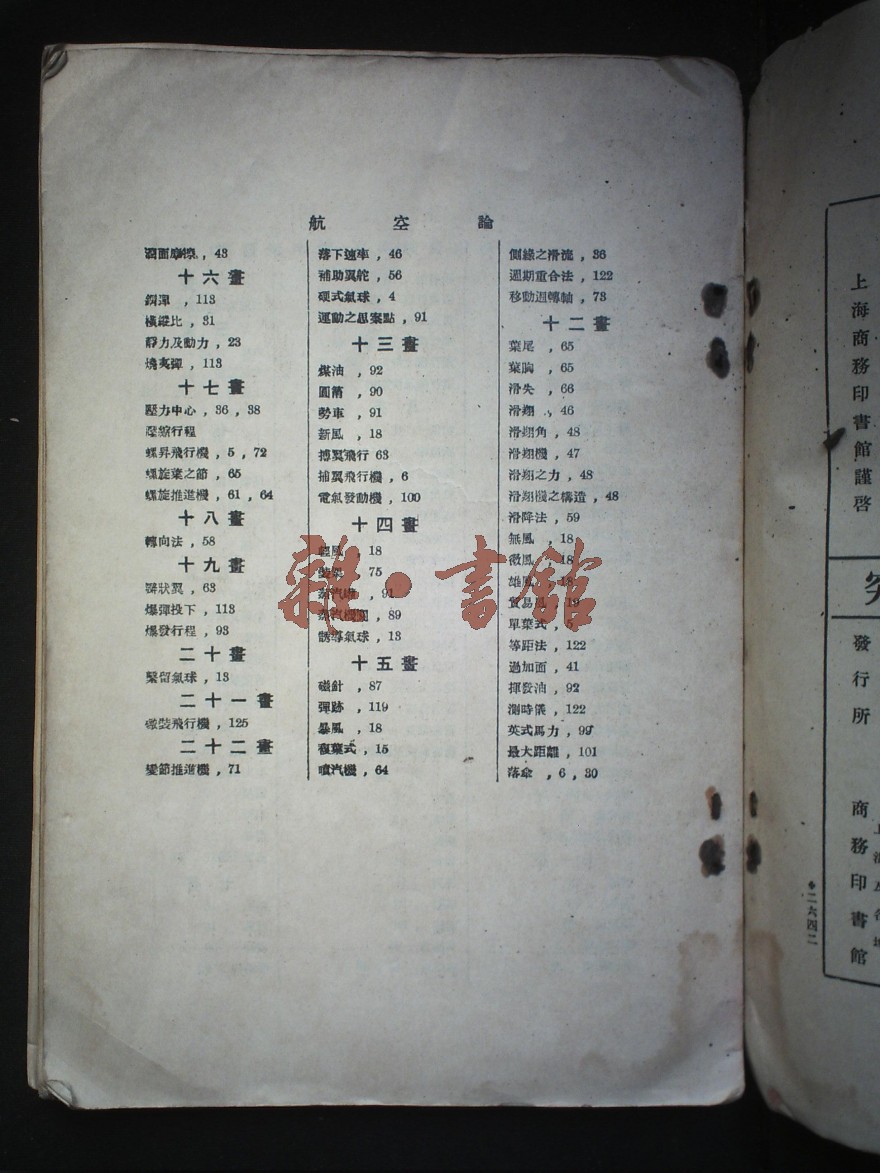 航空論
側綠之滑流,36
週期重合法,122
移動迴轉軸,73
十二畫
葉尾,65
葉胸,65
滑失,66
滑翔,46
滑翔角,48
滑翔機,47
滑翔之力,48
滑翔機之構造,48
滑降法,59
無風,18
微風,18
雄風,18
貿易風,19
單葉式,5
等距法,122
過加面,41
揮發油,92
測時儀,122
英式馬力,99
最大距離,101
落傘,6,30
落下速車,46
補助翼舵,56
硬式氣球,4
運動之思案點,91
十三畫
煤油,92
圓筩,90
勢車,91
新風,18
搏翼飛行 63
捕翼飛行機,6
電氣發動機,100
十四畫
輕風,18
75
91
蒸汽機關,89
誘導氣球,13
十五畫
磁針,87
彈跡,119
暴風,18
複葉式,15
噴汽機,64
面摩擦,43
十六畫
鋼彈,113
橫縱比,31
靜力及動力,23
燒夷彈,113
十七畫
壓力中心,36,38
壓縮行程
螺昇飛行機,5,72
螺旋葉之節,65
螺旋推進機,61,64
十八畫
轉向法,58
十九畫
狀翼,63
爆彈投下,113
爆發行程,93
二十畫
繫留氣球,13
二十一畫
裝飛行機,125
二十二畫
變節推進機,71
雜·書館
上海商務印書館謹啓
發行所
商務印書館
二六四二